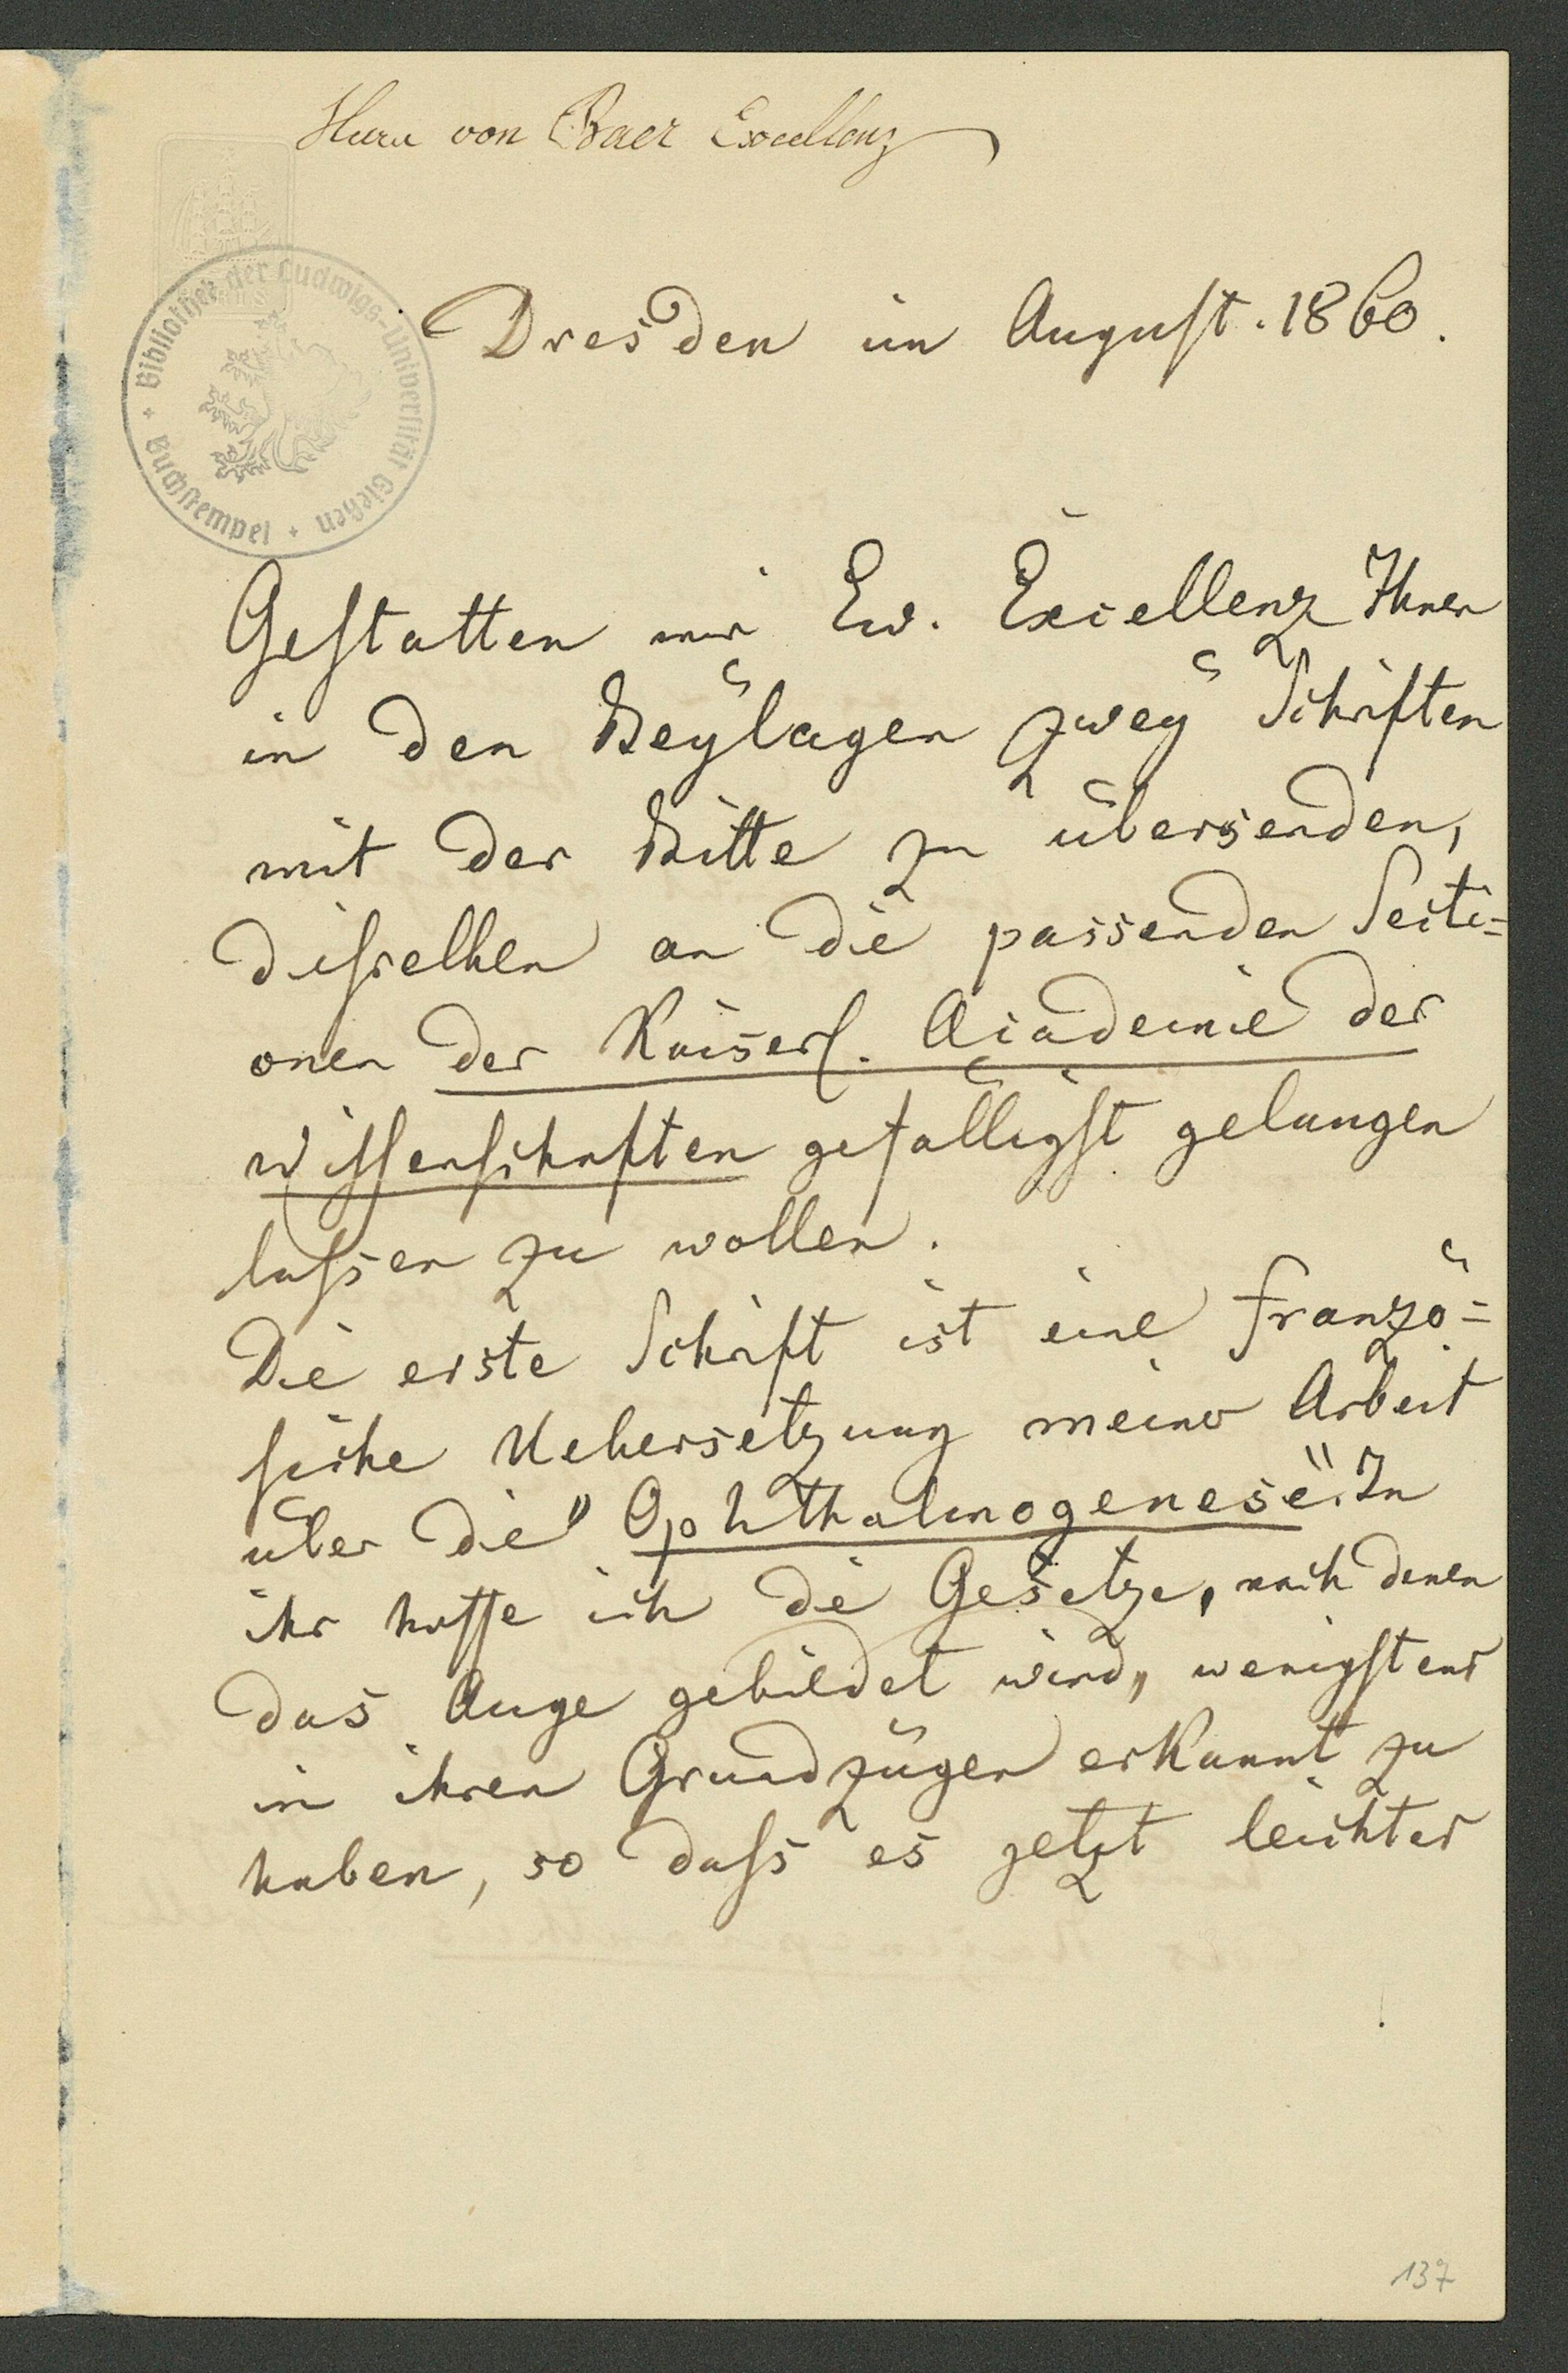 Herrn von Baer Excellenz
Bibliothek der Ludwigs-Universität Gießen + Buchstempel +
Dresden im August. 1860.
Gestatten mir Ew. Excellenz Ihnen
in den Beÿlagen zweÿ Schriften
mit der Bitte zu übersenden,
dieselben an die passenden Secti=
onen der Kaiserl. Academie der
Wissenschaften gefälligst gelangen
lassen zu wollen.
Die erste Schrift ist eine franzö=
sische Uebersetzung meiner Arbeit
über die "Ophthalmogenese". In
ihr hoffe ich die Gesetze, nach denen
das Auge gebildet wird, wenigstens
in ihren Grundzügen erkannt zu
haben, so dass es jetzt leichter
137